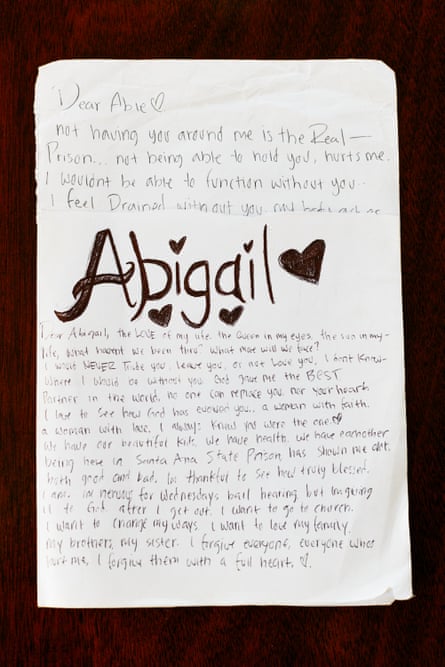 Dear Abie ♡
not having you around me is the Real—
Prison... not being able to hold you, hurts me.
I wouldnt be able to function without you..
I feel Drained without you, my body
Abigail ♥
Dear Abigail, the LOVE of my life. the Queen in my eyes, the sun in my-
life, what havent we been thru? What more will we face?
I would NEVER Trade you, leave you, or not love you, I dont Know-
Where I would be without you. God gave me the BEST
Partner in the world, no one can replace you nor your heart.
I love to see how God has you.. a woman with faith.
a woman with love. I always Know you were the one.♡
We have our beautiful Kids, we have health, we have eachother
being here in Santa Ana State Prison, has shown me alot.
both good and bad. Im thankful to see how truly blessed.
I am. Im nervous for Wednesdays bail hearing, but Im giving
it to God. after I get out. I want to go to church.
I want to change my ways. I want to love my family.
my brothers, my sister. I forgive everyone, everyone whos
hurt me, I forgive them with a full heart. ♡.